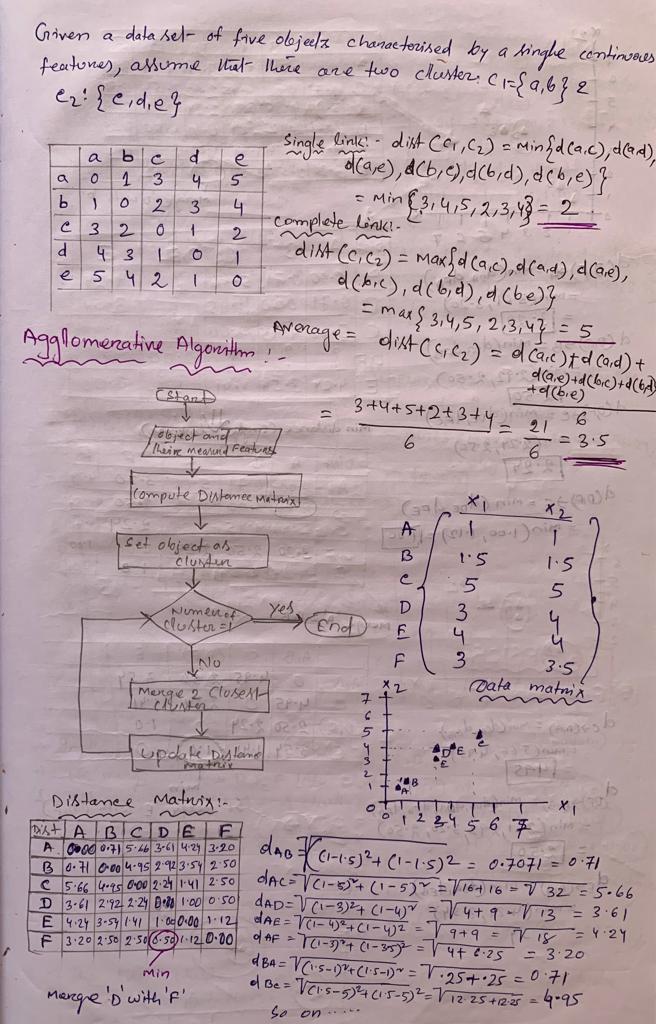 Given a data set of five objects characterised by a single continuous
features, assume that there are two cluster. C1={a,b} 2
C2: {c,d,e}
a b c d e
a 0 1 3 4 5
b 1 0 2 3 4
c 3 2 0 1 2
d 4 3 1 0 1
e 5 4 2 1 0
Single link:- dist (C1,C2) = Min{d(a,c), d(a,d),
d(a,e), d(b,c), d(b,d), d(b,e)}
= Min {3,4,5,2,3,4} = 2
Complete link:-
dist (C1,C2) = Max{d(a,c), d(a,d), d(a,e),
d(b,c), d(b,d), d(b e)}
= max {3,4,5,2,3,4} = 5
Average = dist (C1,C2) = d(a,c)+d(a,d)+
d(a,e)+d(b,c)+d(b,d)
+d(b,e)
6
= 3+4+5+2+3+4 / 6 = 21 / 6 = 3.5
Agglomerative Algorithm :-
Start
object and
their measured features
Compute Distance Matrix
Set object as
cluster
Numer of
cluster=1
Yes
End
No
Merge 2 Closest
cluster
update Distance
matrix
X1 X2
A 1 1
B 1.5 1.5
C 5 5
D 3 4
E 4 4
F 3 3.5
Data matrix
X2
7
6
5
4
3
2
1
0 1 2 3 4 5 6 7 X1
C
D E
E
B
A
Distance Matrix:-
Dist A B C D E F
A 0.00 0.71 5.66 3.61 4.24 3.20
B 0.71 0.00 4.95 2.92 3.54 2.50
C 5.66 4.95 0.00 2.24 1.41 2.50
D 3.61 2.92 2.24 0.00 1.00 0.50
E 4.24 3.54 1.41 1.00 0.00 1.12
F 3.20 2.50 2.50 0.50 1.12 0.00
Min
Merge 'D' with 'F'
dAB = √(1-1.5)²+(1-1.5)² = 0.7071 = 0.71
dAC = √(1-5)²+(1-5)² = √16+16 = √32 = 5.66
dAD = √(1-3)²+(1-4)² = √4+9 = √13 = 3.61
dAE = √(1-4)²+(1-4)² = √9+9 = √18 = 4.24
dAF = √(1-3)²+(1-3.5)² = √4+6.25 = 3.20
dBA = √(1.5-1)²+(1.5-1)² = √.25+.25 = 0.71
dBC = √(1.5-5)²+(1.5-5)² = √12.25+12.25 = 4.95
So on .....